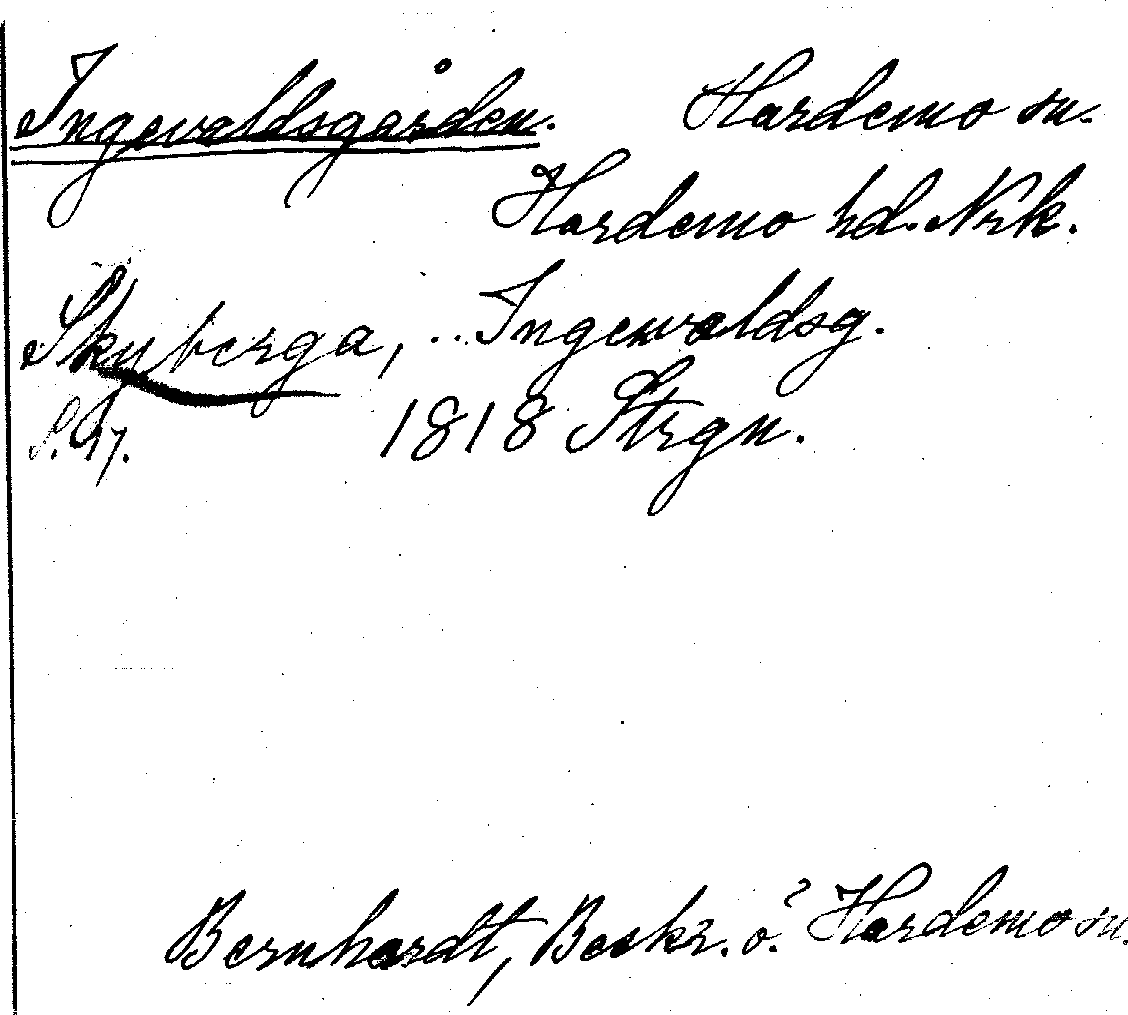 Ingevaldsgården. Hardemo sn.
Hardemo hd. Nrk.
Skyberga, .. Ingewaldsg.
S. 17. 1818 Strgn.
Bernhardt, Beskr. ö. Hardemo sn.